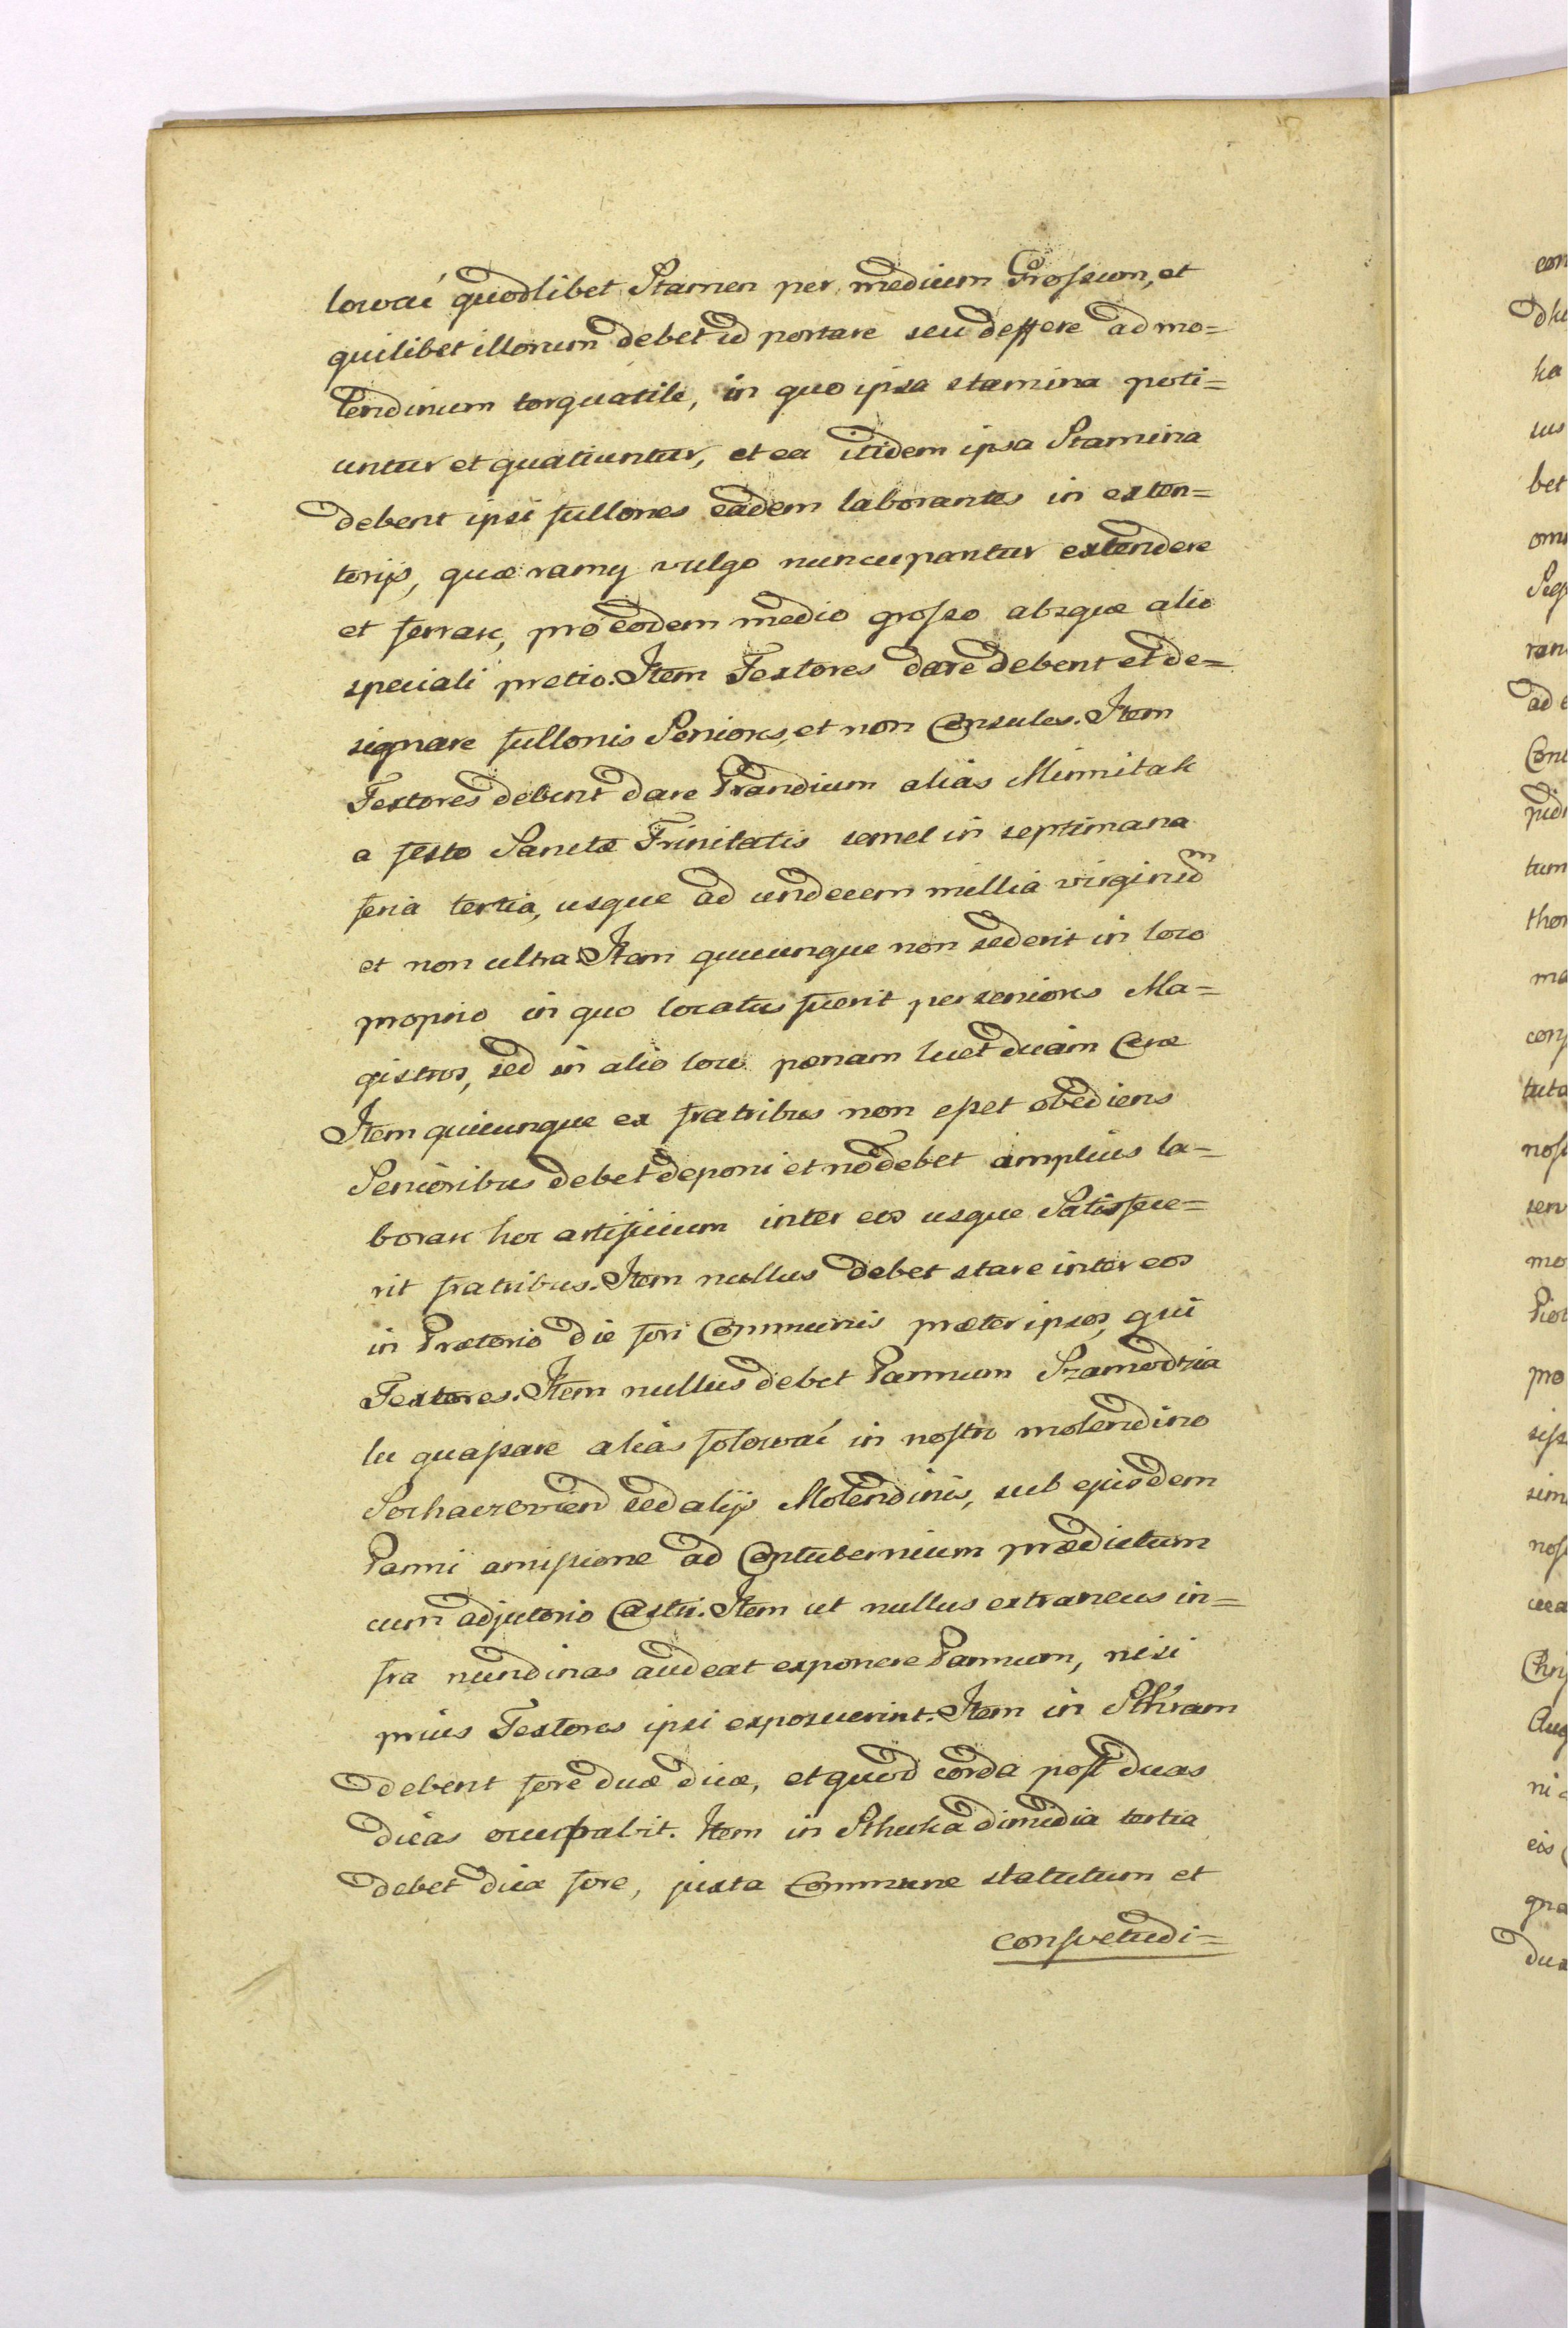 lować quodlibet Stamen per medium Grossum, et
quilibet illorum debet id portare seu deffere ad mo=
lendinum torquatile, in quo ipsa stamina poti=
untur et quatiuntur, et ea itidem ipsa Stamina
debent ipsi fullones eadem laborantes in exten=
torijs, quæ ramy vulgo nuncupantur extendere
et ferrare, pro eodem medio grosso absque alio
speciali pretio. Item Textores dare debent et de=
signare fullonis Seniores, et non Consules. Item
Textores debent dare Prandium aliàs Mirmitak
a festo Sanctæ Trinitatis semel in septimana
feria tertia, usque ad undecem millia virginum
et non ultra Item quicunque non sederit in loco
proprio in quo locatus fuerit per seniores Ma=
gistros, sed in alio loco pænam luet duam Ceræ
Item quicunque ex fratribus non esset obediens
Senioribus debet deponi et nõ debet amplius la=
borare hoc artificium inter eos usque Satisfece=
rit fratribus. Item nullus debet stare inter eos
in Prætorio die fori Communis præter ipsos, qui
Textores. Item nullus debet Pannum Szamodzia
lu quassare aliàs folować in nostro molendino
Sochaczovien sed alijs Molendinis, sub ejusdem
Panni amissione ad Contubernium prædictum
cum adjutorio Castri. Item ut nullus extraneus in=
fra nundinas audeat exponere Pannum, nisi
prius Textores ipsi exposuerint. Item in Sthram
debent fore duæ dicæ, et quod corda post duas
dicas occupabit. Item in Sthuka dimidia tertia
debet dica fore, juxta Commune statutum et
consvetudi=